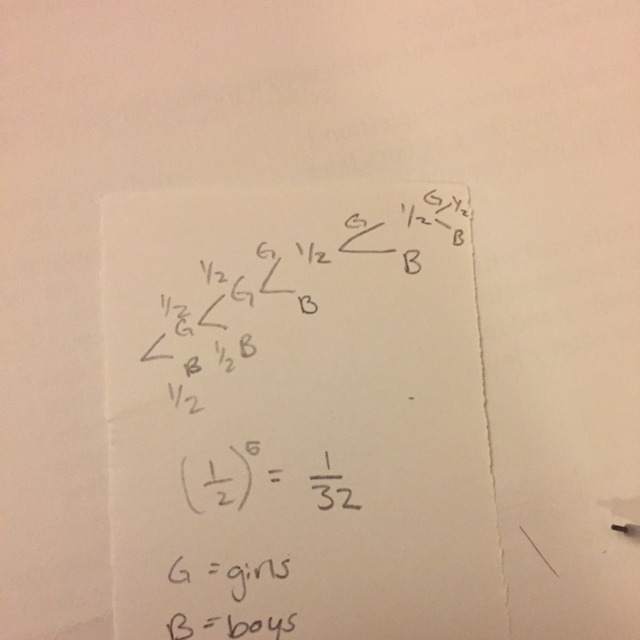 G 1/2
1/2 B
G 1/2 B
G 1/2 B
1/2 G B
1/2 G 1/2 B
B
1/2
(1/2)^5 = 1/32
G = girls
B = boys